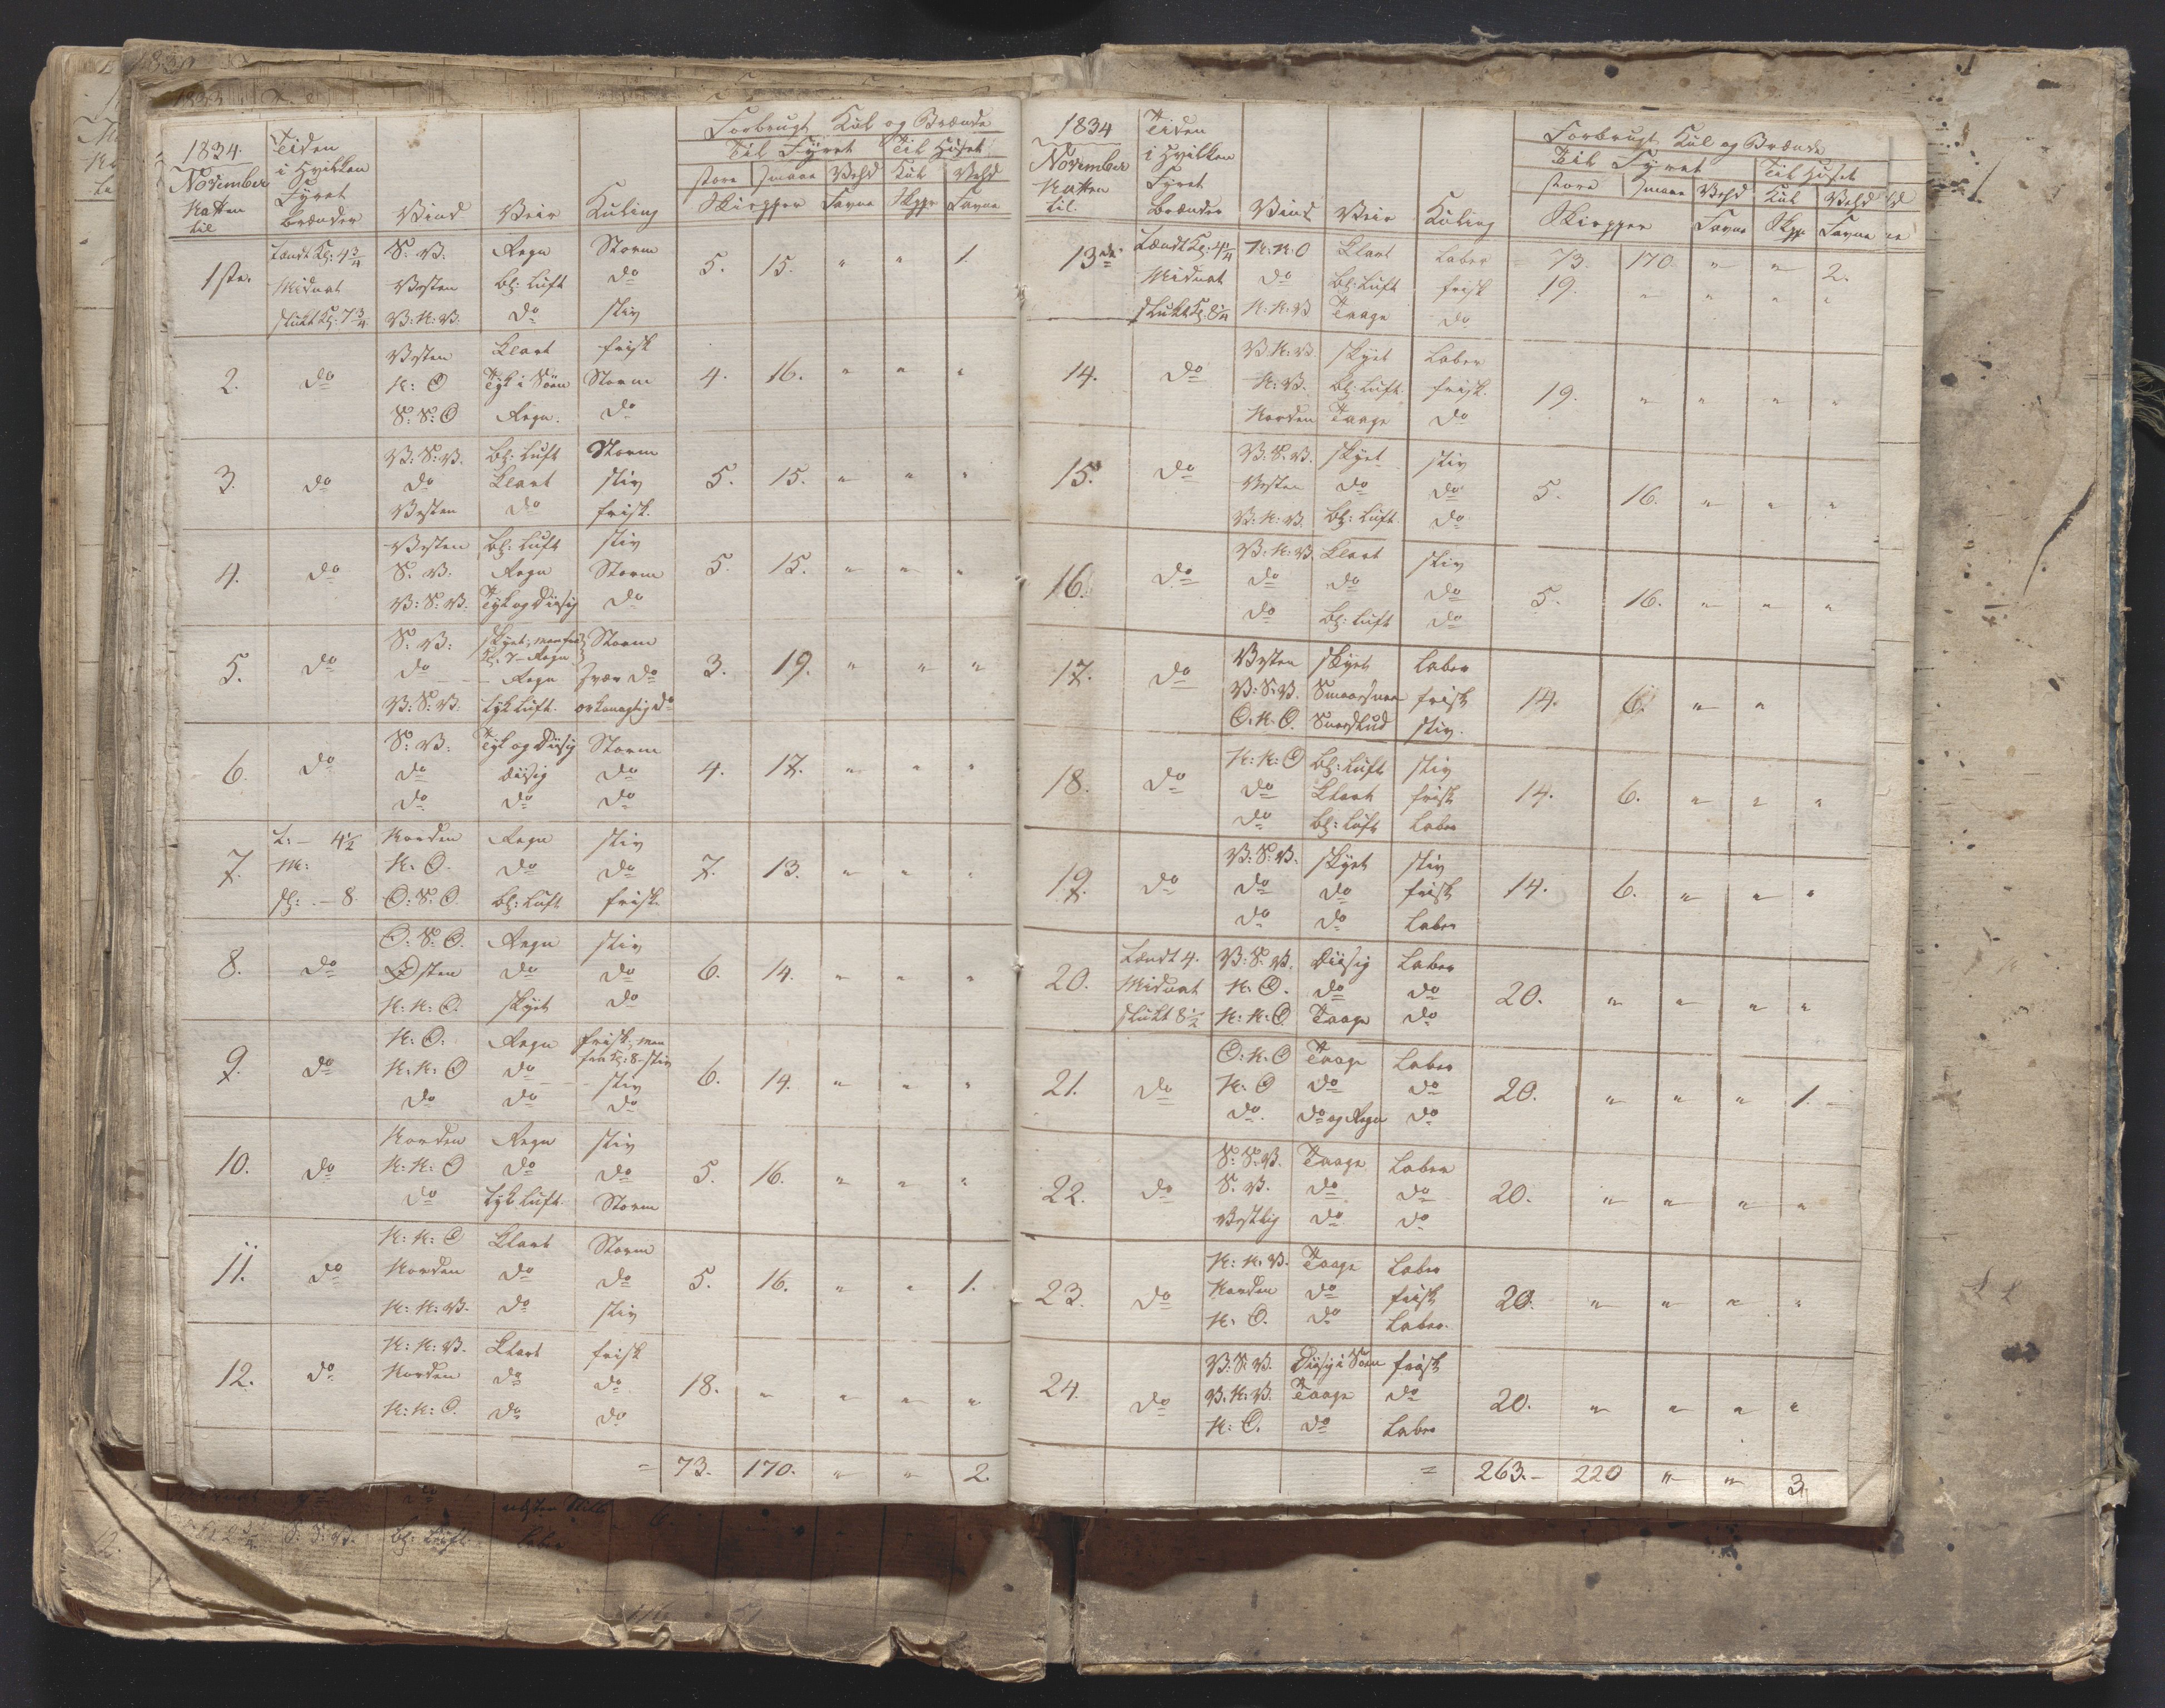 1834.
November
Natten
til
Tiden
i Hvilken
Fyret
brænder
Vind
Veir
Kuling
Forbrugt Kul og Brænde
Til Fyret
Til Huset
store
smaae
Vehd
Kul
Vehd
Skiepper
Favne
Skppr
Favne
1ste. Tændt Kl: 4¾ S: V: Regn Storm 5. 15. " " 1.
Midnat Vesten bl: Luft do
slukt Kl: 7¾ V: N: V. do stiv
2. do Vesten Klart frisk 4. 16. " " "
N: O Tyk i Søen Storm
S: S: O Regn. do
3. do V: S: V. bl: Luft Storm 5. 15. " " "
do Klart stiv
Vesten do frisk.
4. do Vesten bl: Luft stiv 5. 15. " " "
S. V: Regn Storm
V: S: V. Tyk og Diisig do
5. do S. V: skyet, men fra Storm 3. 19. " " "
Kl: 7 - Regn
do Regn svær do
V: S: V. tyk Luft. orkanagtig do
6. do S: V: Tyk og Diisig Storm 4. 17. " " "
do diisig do
do do do
7. T: - 4½ Norden Regn stiv 7. 13. " " "
M: N: O. do do
sl: - 8. O: S: O. bl: Luft frisk
8. do O: S: O. Regn stiv 6. 14. " " "
Østen do do
N: N: O. skyet do
9. do N: O: Regn frisk, men 6. 14. " " "
fra Kl: 8 - stiv
N: N: O do stiv
do do do
10. do Norden Regn stiv 5. 16. " " "
N: N: O do do
do tyk Luft. Storm
11. do N: N: O Klart Storm 5. 16. " " 1.
Norden do do
N: N: V. do stiv
12. do N: N: V. Klart frisk 18. " " " "
Norden do do
N: N: O. do do
= 73. 170. " " 2.
1834
November
Natten
til.
Tiden
i Hvilken
Fyret
brænder
Vind
Veir
Kuling
Forbrugt Kul og Brænde
Til Fyret
Til Huset
store
smaae
Vehd
Kul
Vehd
Skiepper
Favne
Skpp
Favne
73. 170. " " 2.
13de Tændt Kl: 4¼ N: N: O Klart laber 19. " " " "
Midnat do bl: Luft frisk
slukt Kl: 8¼ N: N: V Taage do
14. do V. N: V. skyet laber 19. " " " "
N: V. bl: Luft. frisk.
Norden Taage do
15. do V: S: V. skyet stiv 5. 16. " " "
Vesten do do
V: N: V. bl: Luft. do
16. do V: N: V. Klart stiv 5. 16. " " "
do do do
do bl: Luft do
17. do Vesten skyet laber 14. 6. " "
V: S: V. Smaasnee frisk
O: N: O. Sneeslud stiv.
18. do N: N: O bl: Luft stiv 14. 6. " " "
do Klart frisk
do bl: Luft laber
19. do V: S: V. skyet stiv 14. 6. " " "
do do frisk
do do laber
20. Tændt 4. V: S: V. Diisig laber 20. " " " "
Midnat N: O. do do
slukt 8½ N: N: O. Taage do
21. do O: N: O Taage laber 20. " " " 1.
N: O do do
do. do og Regn do
22. do S: S: V. Taage laber 20. " " " "
S. V. do do
Vestlig do do
23. do N: N: V. Taage laber 20. " " " "
Norden do frisk
N: O. do laber.
24. do V: S: V. Diisig i Søen frisk 20. " " " "
V. N: V. Taage do
N: O. do laber
= 263. - 220 " " 3.